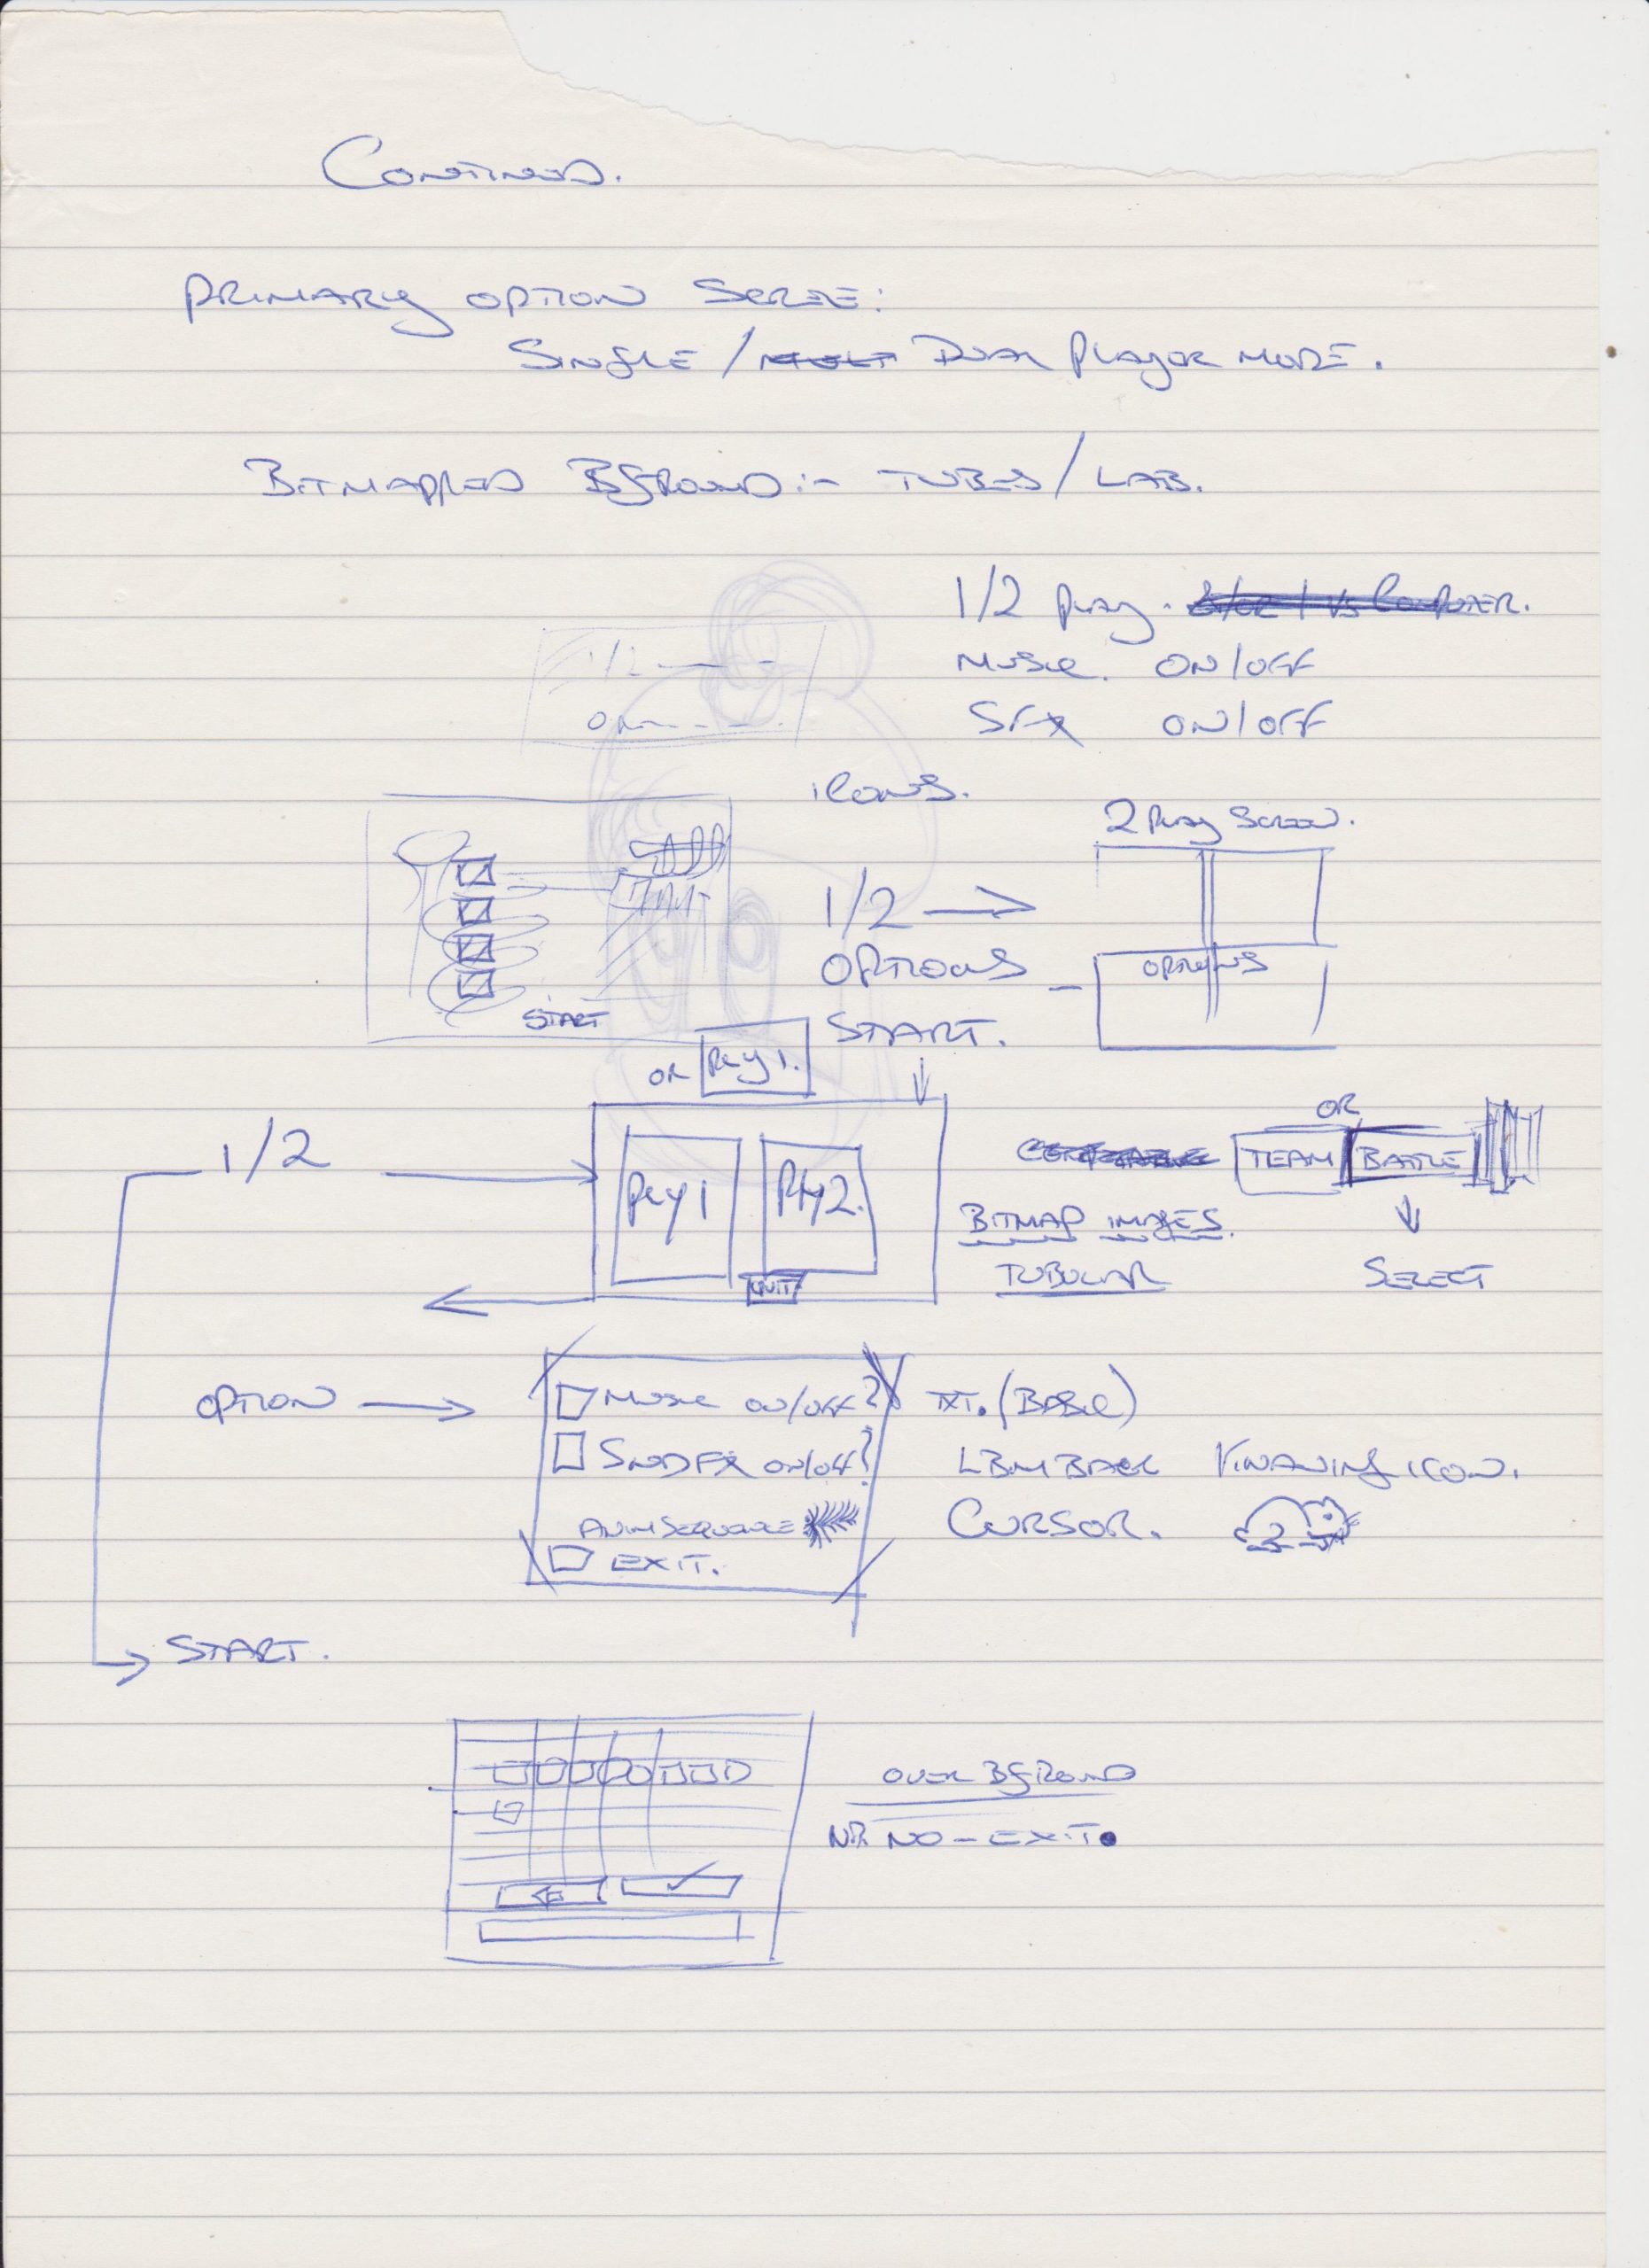 CONTINUED.
PRIMARY OPTION SCREE:
SINGLE / MULT DUAL PLAYER MODE.
BITMAPPED BGROUND:- TUBES / LAB.
1/2 PLAY. 1 VS COMPUTER.
MUSIC. ON/OFF
SFX ON/OFF
1/2
ICONS.
2 PLAY SCREEN.
1/2
OPTIONS
OPTIONS
START
START.
OR PLY 1.
1/2
PLY 1 PLY 2.
QUIT
OR
TEAM BATTLE
BITMAP IMAGES.
TUBULAR
SELECT
OPTION
MUSIC ON/OFF?
TXT. (BASIC)
SNDFX ON/OFF?
LBM BACK ICON.
ANIM SEQUENCE
CURSOR.
EXIT.
START.
OVER BGROUND
NO - EXIT.